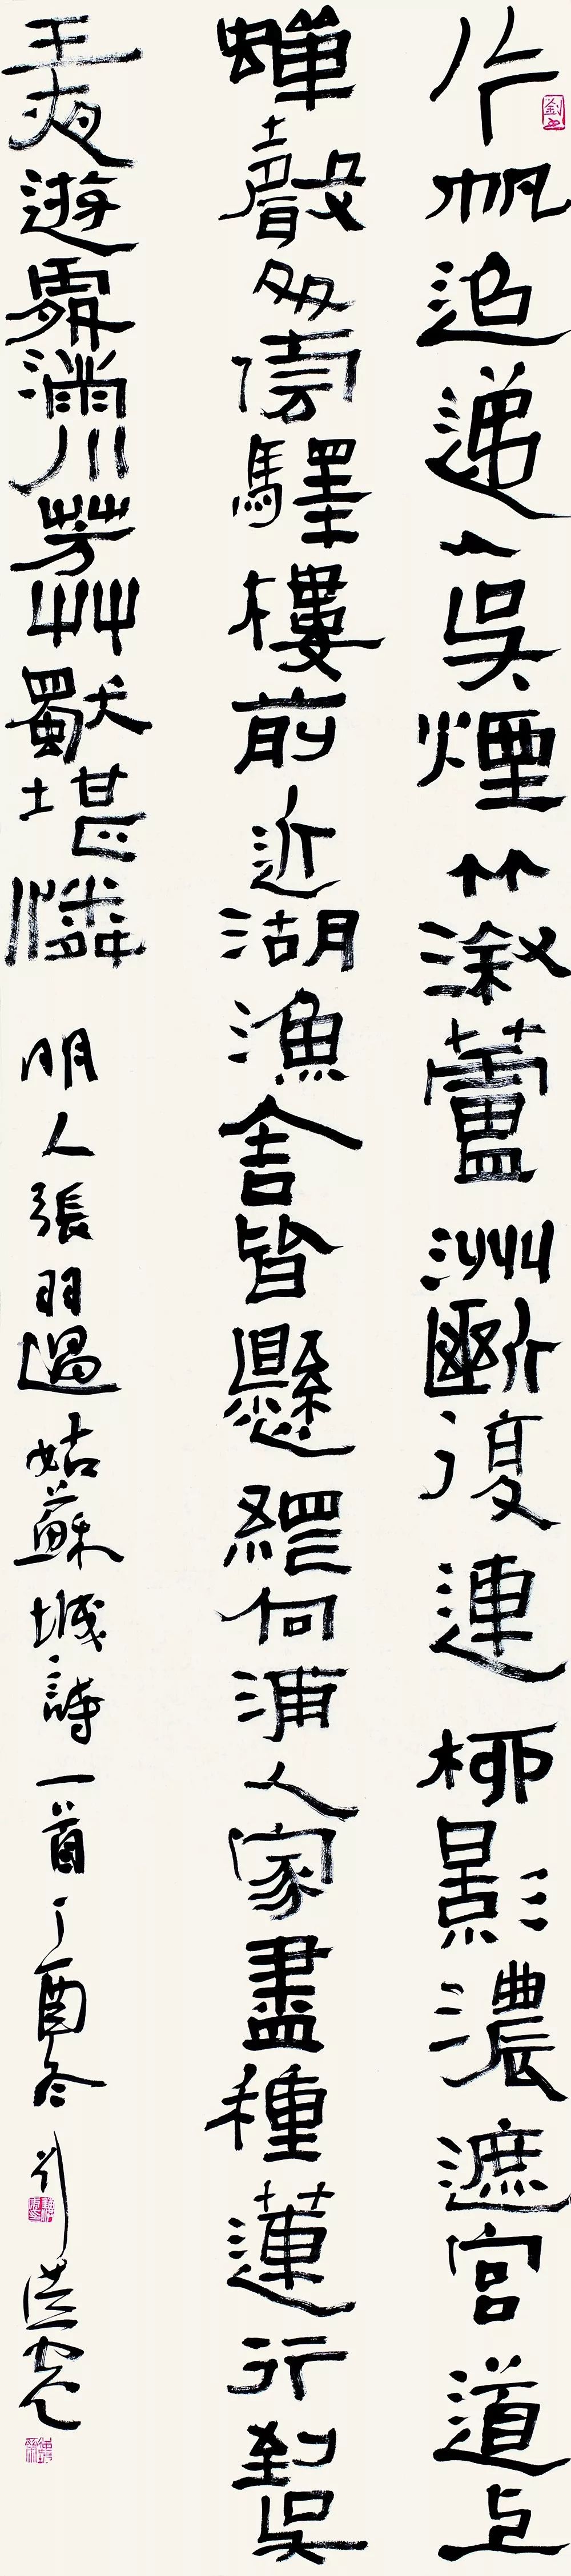 片帆迢遞入吳煙竹漵蘆洲斷復連柳影濃遮官道上
蟬聲多傍驛樓前近湖漁舍皆懸網向浦人家盡種蓮行到吳
王夜遊處滿川芳艸獨堪憐 明人張羽過姑蘇城詩一首丁酉冬劉